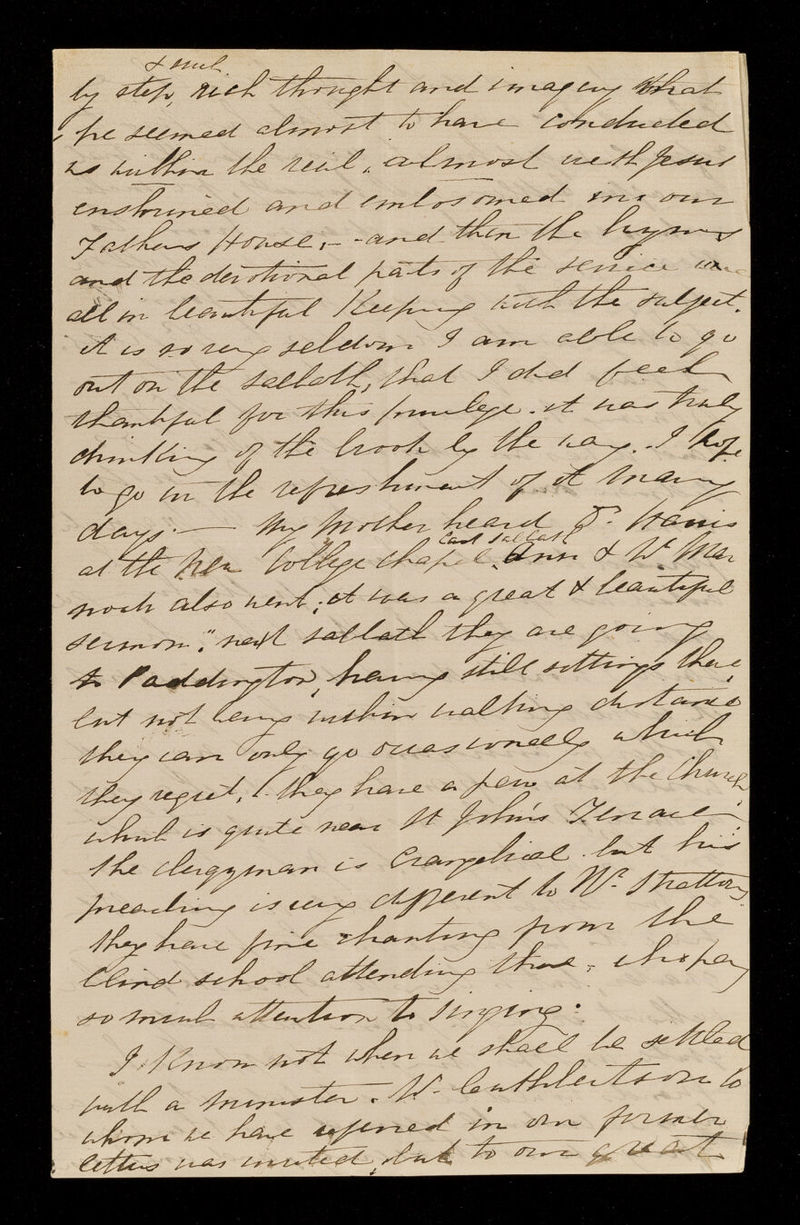 & such
by step, rich thought and imagery that
he seemed almost to have conducted
us within the veil, almost with Jesus
enshrined and embosomed in our
Fathers House, - and then the hymns
and the devotional parts of the service were
all in beautiful Keeping with the subject.
it is so very seldom I am able to go
out on the sabbath, that I did feel
thankful for this privilege. it was truly
drinking of the brook by the way. I hope
to go in the refreshment of it many
days. — My Mother heard Dr. Harris
last sabbath
at the New College chapel, Ann & Mr Mar
noch also went; it was a great & beautiful
sermon." next sabbath they are going
to Paddington, having still sittings there,
but not being within walking distance
they can only go occasionally which
they regret. they have a pew at the Church
which is quite near St John's Terrace
the clergyman is Evangelical but his
preaching is very different to Mr. Strattons
they have fine chanting from the
blind school attending there, who pay
so much attention to singing.
I know not when we shall be settled
with a minister. Mr. Cuthbertson to
whom we have referred in our former
letters was invited, but to our great